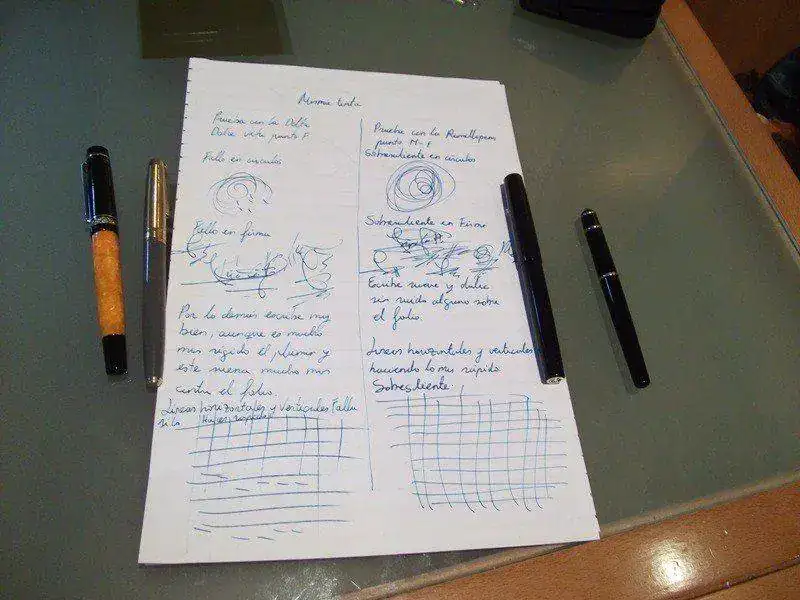 Misma tinta
Prueba con la Delta
Dolce vita punto F
Fallo en circulos
Fallo en firma
Por lo demás escribe muy
bien, aunque es mucho
mas rigido el plumin y
este suena mucho mas
contra el folio.
Lineas horizontales y verticales falla
si lo hago rapido
Prueba con la Romillopens
punto M-F
Sobresaliente en circulos
Sobresaliente en Firma
Escribe suave y dulce
sin ruido alguno sobre
el folio.
Lineas horizontales y verticales
haciendolo mas rápido
Sobresaliente